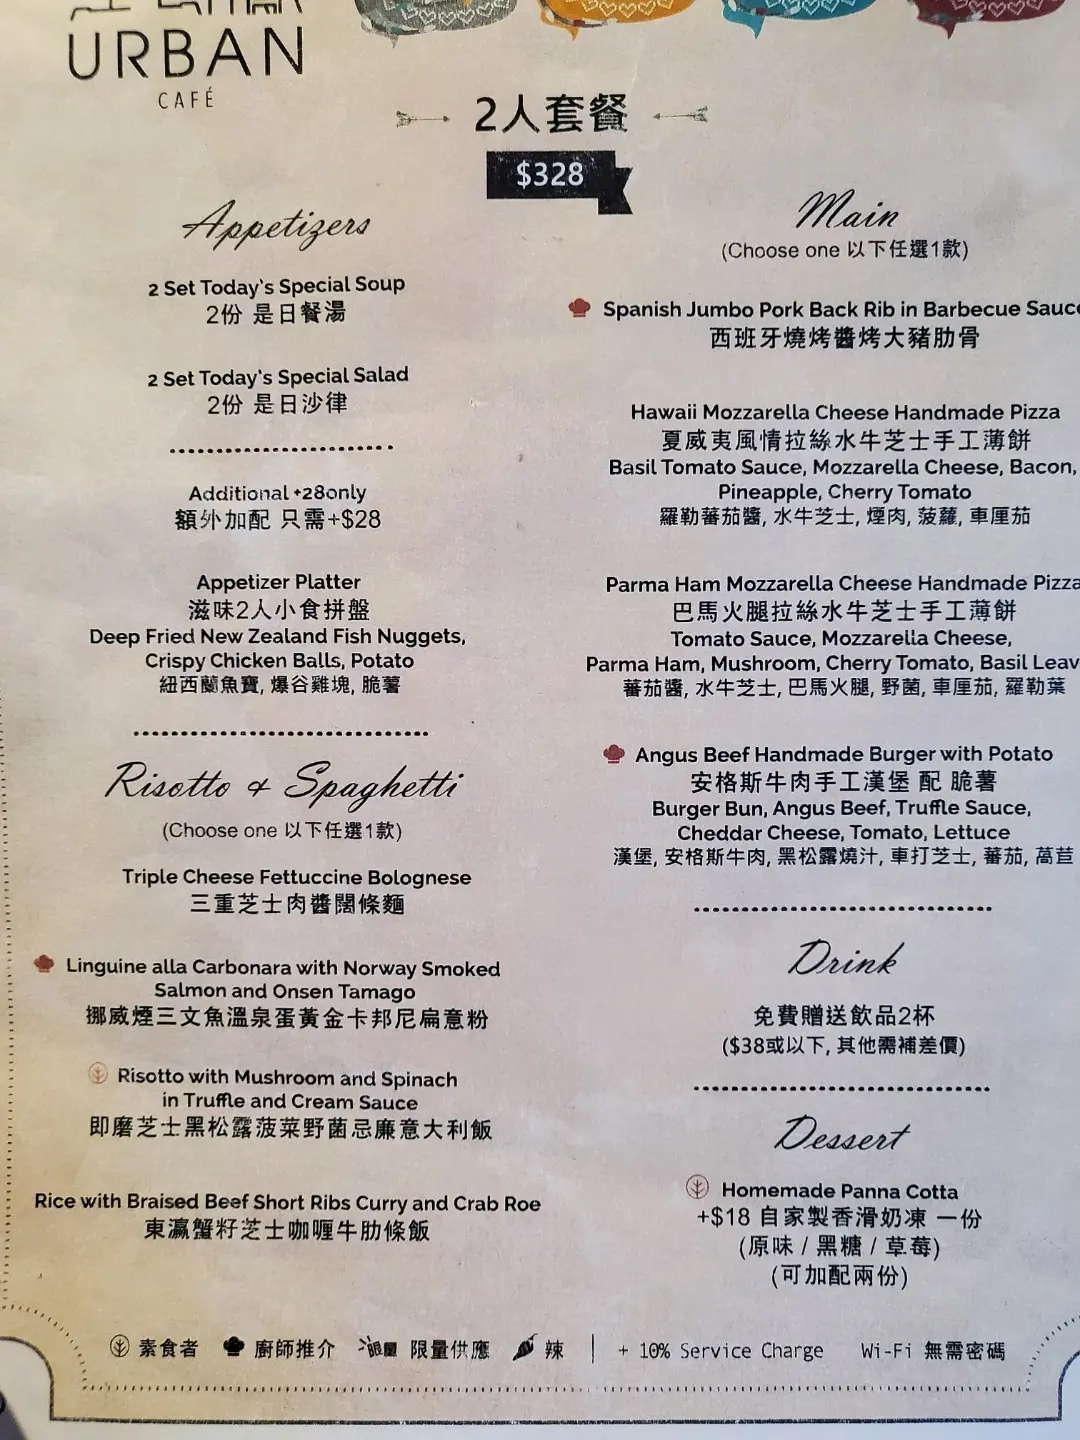 URBAN
CAFÉ
2人套餐
$328
Appetizers
2 Set Today's Special Soup
2份 是日餐湯
2 Set Today's Special Salad
2份 是日沙律
Additional +28only
額外加配 只需+$28
Appetizer Platter
滋味2人小食拼盤
Deep Fried New Zealand Fish Nuggets,
Crispy Chicken Balls, Potato
紐西蘭魚寶, 爆谷雞塊, 脆薯
Risotto & Spaghetti
(Choose one 以下任選1款)
Triple Cheese Fettuccine Bolognese
三重芝士肉醬闊條麵
Linguine alla Carbonara with Norway Smoked
Salmon and Onsen Tamago
挪威煙三文魚溫泉蛋黃金卡邦尼扁意粉
Risotto with Mushroom and Spinach
in Truffle and Cream Sauce
即磨芝士黑松露菠菜野菌忌廉意大利飯
Rice with Braised Beef Short Ribs Curry and Crab Roe
東瀛蟹籽芝士咖喱牛肋條飯
Main
(Choose one 以下任選1款)
Spanish Jumbo Pork Back Rib in Barbecue Sauce
西班牙燒烤醬烤大豬肋骨
Hawaii Mozzarella Cheese Handmade Pizza
夏威夷風情拉絲水牛芝士手工薄餅
Basil Tomato Sauce, Mozzarella Cheese, Bacon,
Pineapple, Cherry Tomato
羅勒蕃茄醬, 水牛芝士, 煙肉, 菠蘿, 車厘茄
Parma Ham Mozzarella Cheese Handmade Pizza
巴馬火腿拉絲水牛芝士手工薄餅
Tomato Sauce, Mozzarella Cheese,
Parma Ham, Mushroom, Cherry Tomato, Basil Leav
蕃茄醬, 水牛芝士, 巴馬火腿, 野菌, 車厘茄, 羅勒葉
Angus Beef Handmade Burger with Potato
安格斯牛肉手工漢堡 配 脆薯
Burger Bun, Angus Beef, Truffle Sauce,
Cheddar Cheese, Tomato, Lettuce
漢堡, 安格斯牛肉, 黑松露燒汁, 車打芝士, 蕃茄, 萵苣
Drink
免費贈送飲品2杯
($38或以下, 其他需補差價)
Dessert
Homemade Panna Cotta
+$18 自家製香滑奶凍 一份
(原味 / 黑糖 / 草莓)
(可加配兩份)
素食者 廚師推介 限量 限量供應 辣 | + 10% Service Charge Wi-Fi 無需密碼